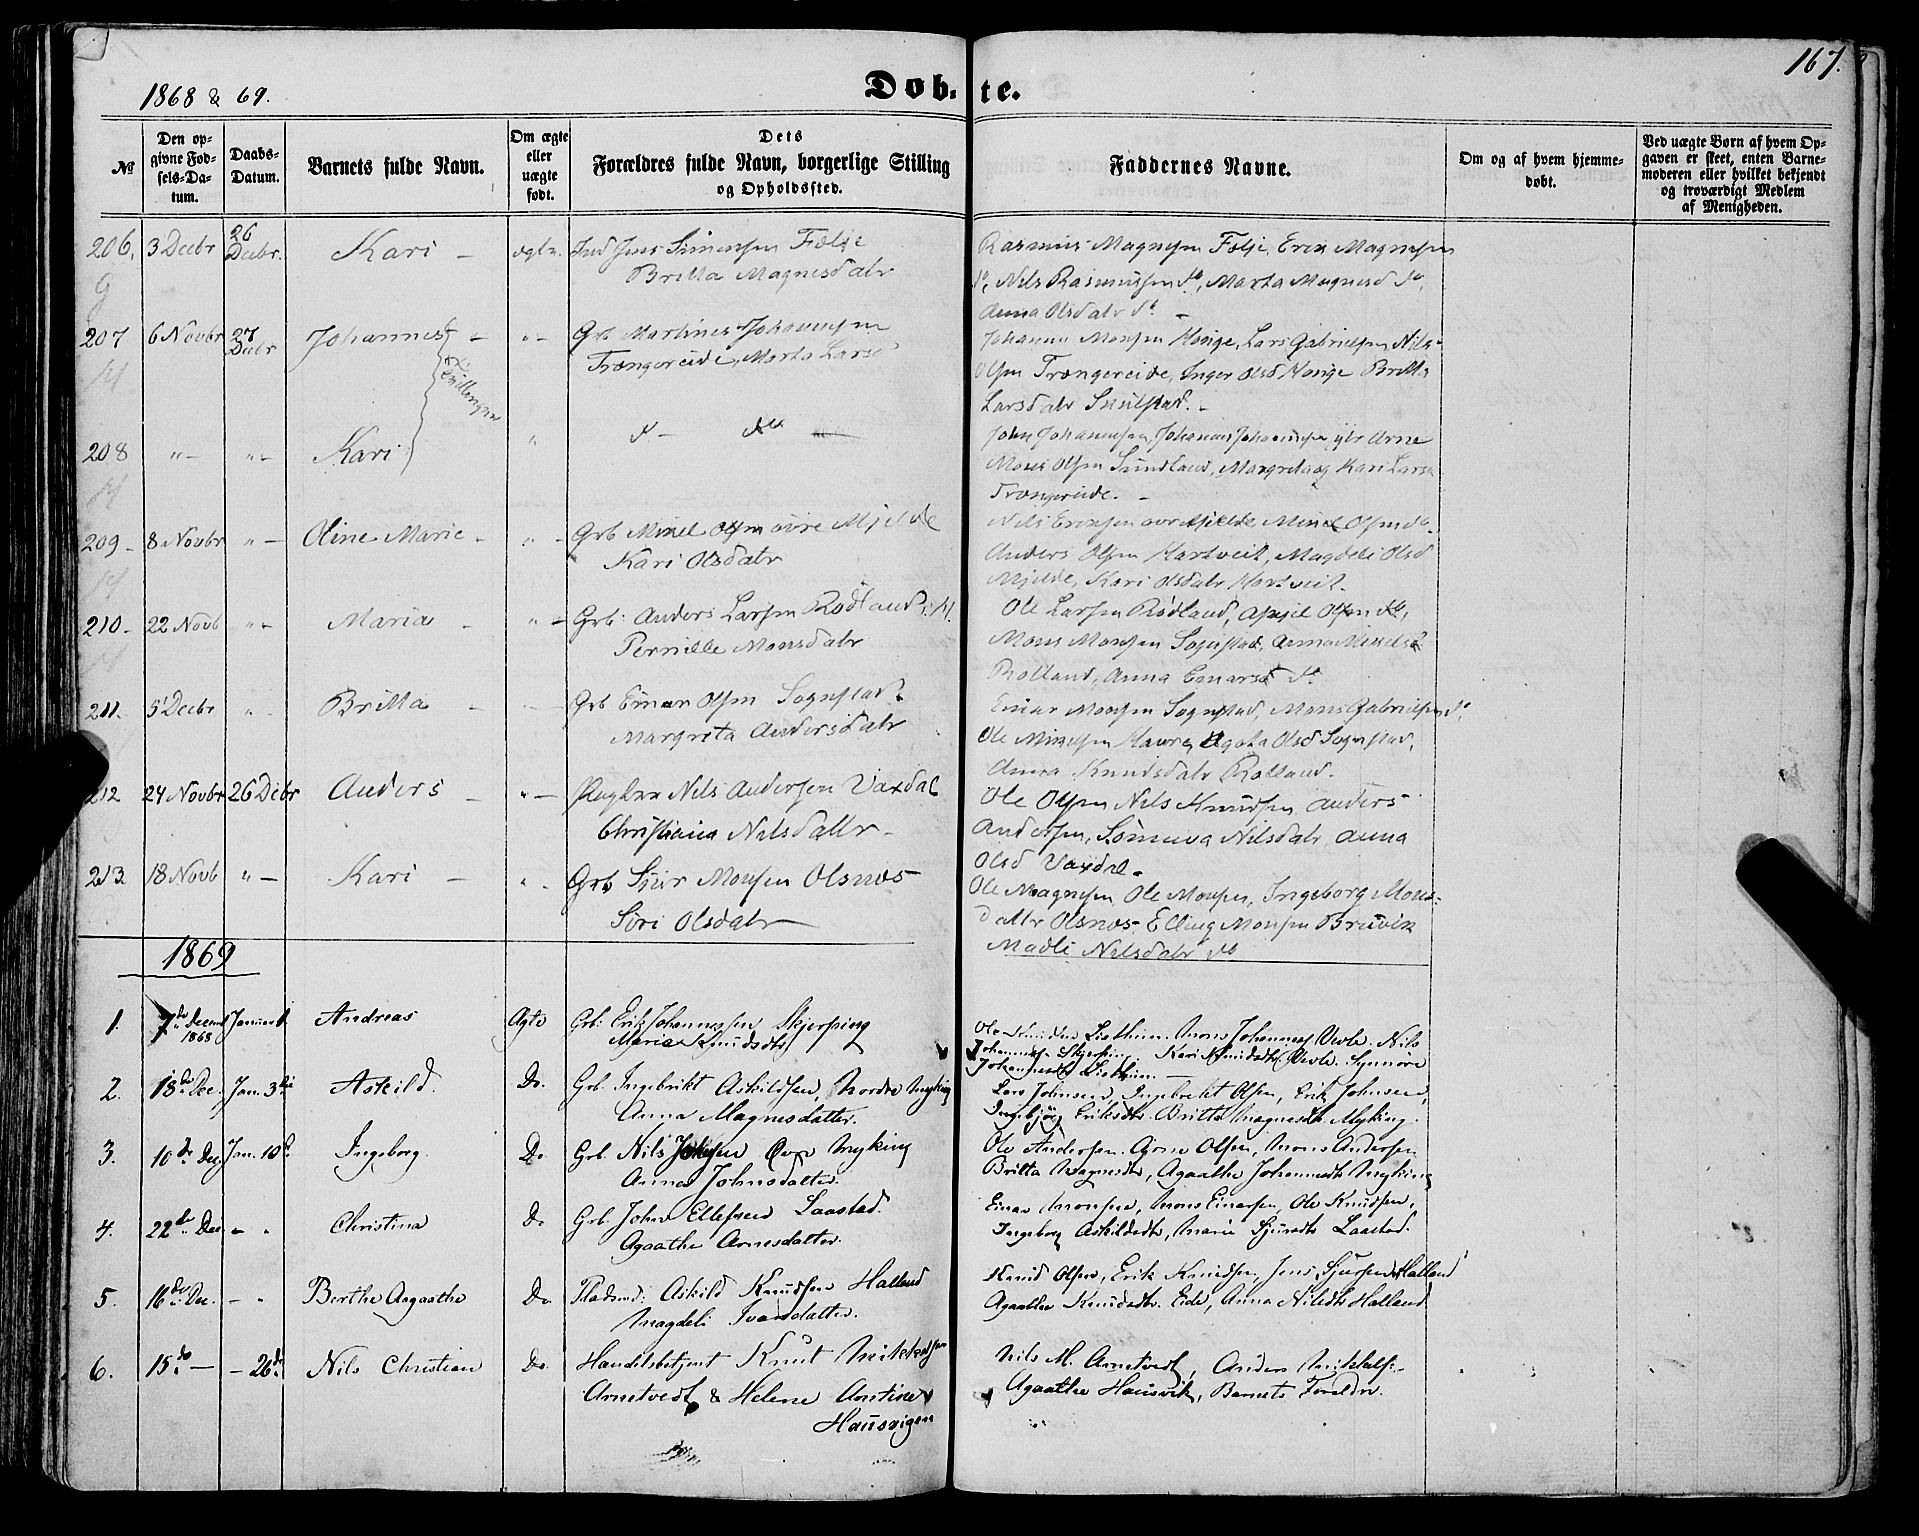 1868 & 69.
Døb-
te.
167.
№
Den op-
givne Fød-
sels-Da-
tum.
Daabs-
Datum.
Barnets fulde Navn.
Om ægte
eller
uægte
født.
Dets
Forældres fulde Navn, borgerlige Stilling
og Opholdssted.
Faddernes Navne.
Om og af hvem hjemme-
døbt.
Ved uægte Børn af hvem Op-
gaven er skeet, enten Barne-
moderen eller hvilket bekjendt
og troværdigt Medlem
af Menigheden.
206. 3 Decbr 26 Decbr. Kari - ægte. Ind Jens Simensen Følje
Britta Magnesdatr
Rasmus Magnesen Følje, Erik Magnesen
do, Nils Rasmussen do, Marta Magnesd do,
Anna Olsdatr do -
207 6 Novbr 27 Decbr Johannes - "- Grb Martines Johannesen
Trængereide, Marta Larsd
Tvillinger
Johannes Monsen Hønge, Lars Gabrielsen, Nils
Olsen Trængereide, Inger Olsd Hønge Britta
Larsdatr
208 "- "- Kari " d - do
John Johannesen, Johannes Johannesen Arne
Mons Olsen Sundland, Margreta og Kari Lars
Trængereide. -
209 - 8 Novbr "- Oline Marie - "- Grb Mikel Olsen øvre Mjelde
Kari Olsdatr
Nils Eriksen øvre Mjelde, Mikel Olsen do
Anders Olsen Hartveit, Magdeli Olsd
Mjelde, Kari Olsdatr Hartveit.
210 - 22 Novb "- Maria - "- Grb: Anders Larsen Rødland
Pernille Monsdatr
Ole Larsen Rødland, Aksel Olsen do,
Mons Monsen Sognstad, Anna Mikelsd
Rolland, Anna Einarsd do
211. 5 Decbr " Britta - Grb Einar Olsen Sognstad.
Margrita Andersdatr
Einar Monsen Sognstad, Mons Gabrielsen do,
Ole Mikelsen Haure, Agata Olsd Sognstad,
Anna Knudsdatr Rolland.
212 24 Novbr 26 Debr Anders - "- Nils Andersen Vaxdal
Christiana Nilsdattr -
Ole Olsen Nils Knudsen Anders
Andersen, Sømeva Nilsdatr Anna
Olsd Vaxdal -
213 18 Novb "- Kari - "- Grb Sjur Monsen Olsnes -
Siri Olsdatr
Ole Magnesen Ole Monsen, Ingeborg Mons-
dattr Olsnes - Elling Monsen Bruvik
Madli Nilsdatr do
1869
1. 7de Decem 1868 Januar 1 Andreas Ægte Grb: Erik Johannessen Skjerping
Maria Knudsdtr
Ole Mons Johannes Vevle. Nils
Johannesen Skjerping. Kari Knudsdtr Vevle. Synnøve
Johannesdtr
2. 18de Dec. Jan. 3di Askild Do. Grb. Ingebrikt Askildsen, Nordre Myking
Anna Magnesdatter.
Lars Johnsen, Ingebrekt Olsen, Erik Johnsen,
Ingebjørg Eriksdtr. Britta Magnesdtr Myking.
3. 10de Dec Jan. 10d Ingeborg. Do Grb. Nils Johnsen Øvre Myking
Anna Johnsdatter.
Ole Andersen. Arne Olsen, Mons Andersen
Britta Magnesdtr, Agaathe Johannesdtr Myking
4. 22de Dec - " Christina Do Grb. John Ellefsen Laastad.
Agaathe Arnesdatter.
Einar Monsen, Mons Einarsen, Ole Knudsen,
Ingeborg Askildsdtr, Marie Sjursdtr Laastad.
5. 16de Dec. - " Berthe Aagaathe Do Pladsmd: Askild Knudsen Halland
Magdeli Ivarsdatter.
Knud Olsen, Erik Knudsen, Jens Sjursen Halland
Agaathe Knudsdtr. Eide, Anna Nilsdtr Halland
6. 15de - - 26de Nils Christian Do. Handelsbetjent Knut Mikkelsen
Arnetvedt & Helene Antine
Hausvigen
Nils M. Arnetvedt, Anders Mikkels.
Agaathe Hausvik, Barnets Forældre.